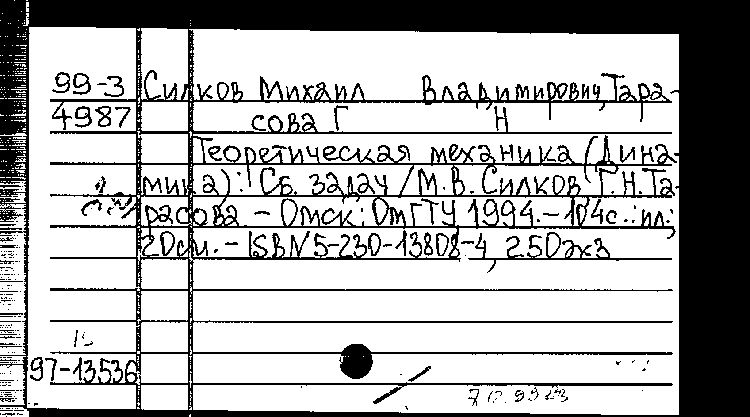 99-3 Силков Михаил Владимирович, Тара-
4987 сова Г Н
Теоретическая механика (Дина-
мика): Сб. задач / М.В. Силков Г.Н. Та-
расова - Омск: ОмГТУ 1994. - 104с.: ил.;
20см. - ISBN 5-230-13808-4, 250экз
97-13536